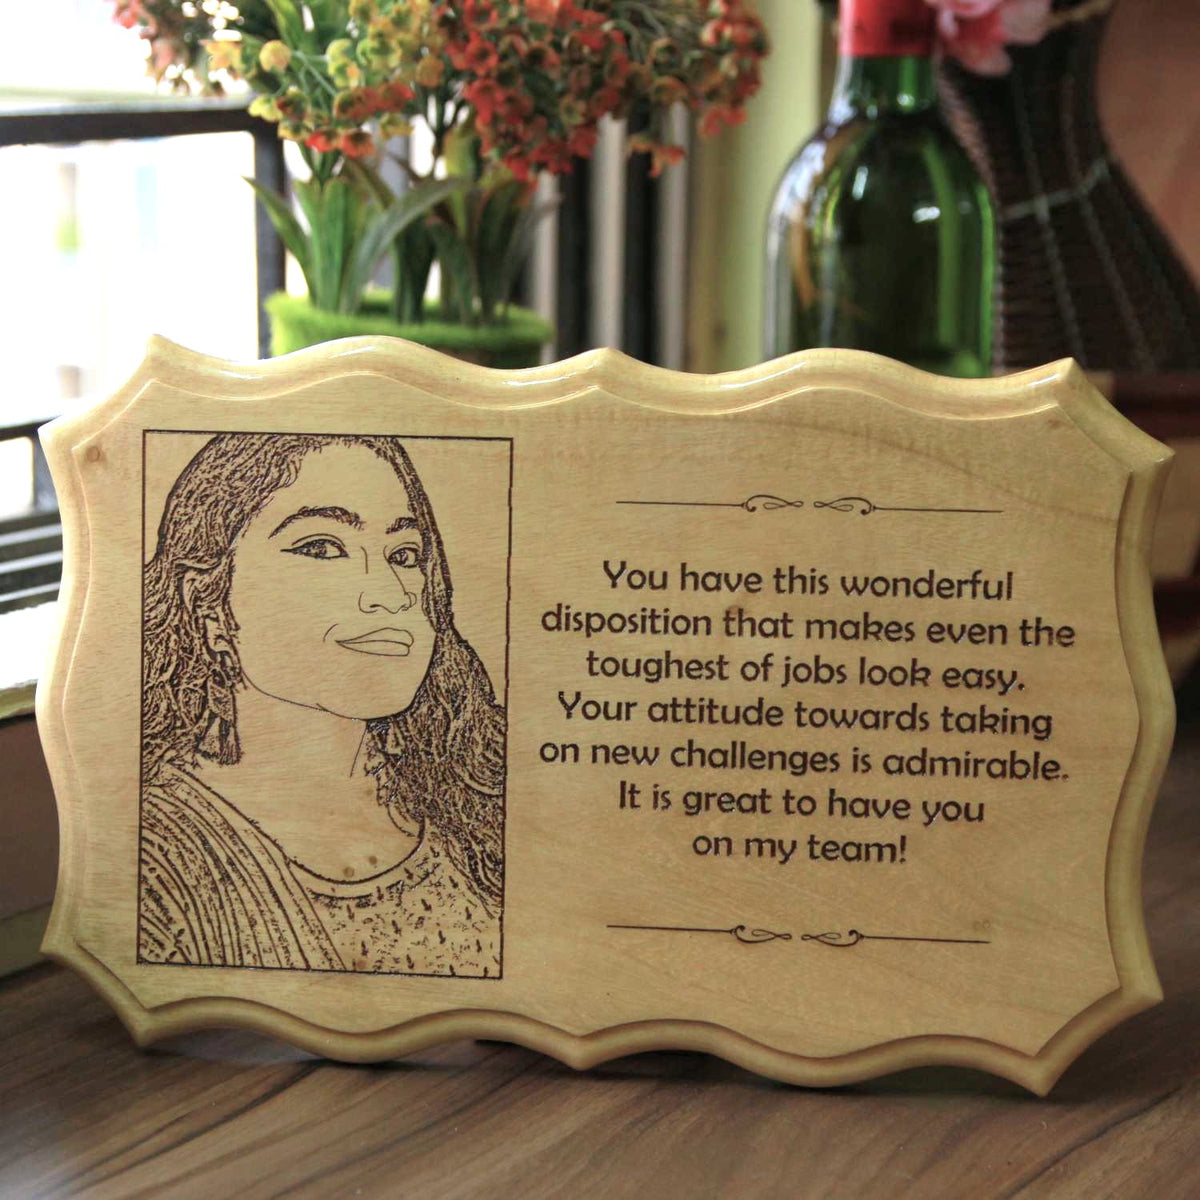 You have this wonderful
disposition that makes even the
toughest of jobs look easy.
Your attitude towards taking
on new challenges is admirable.
It is great to have you
on my team!